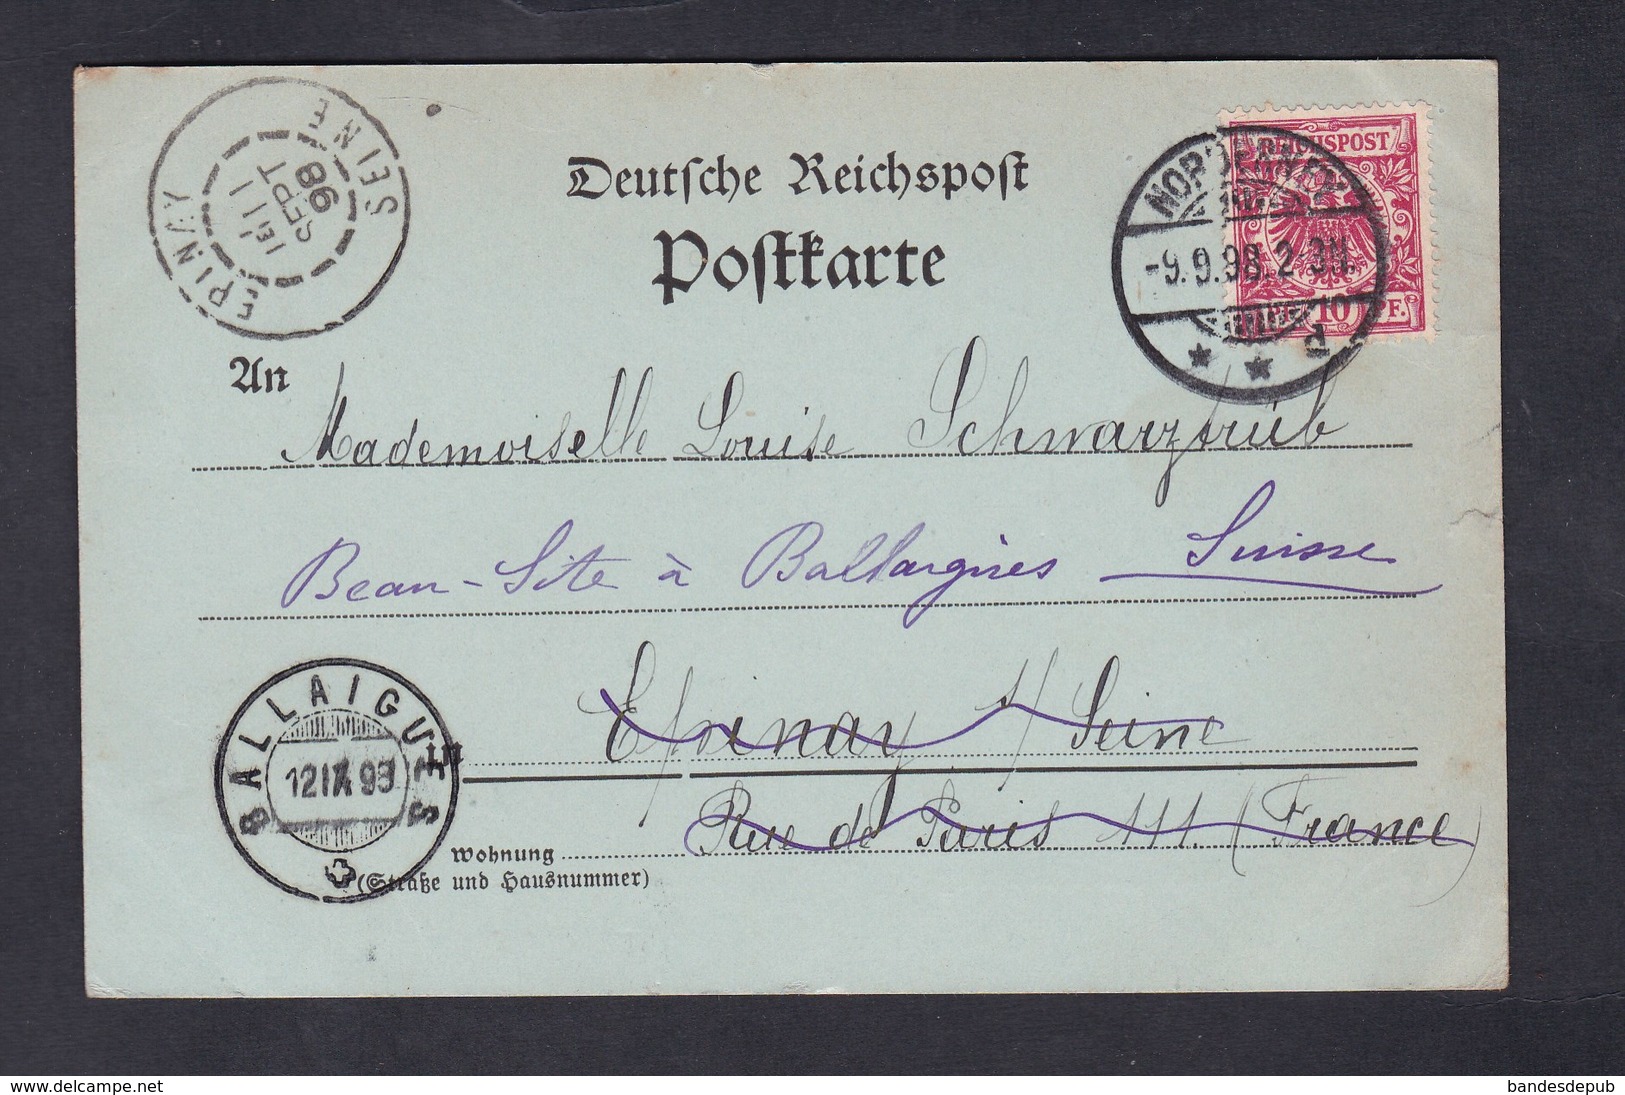 EPINAY
SEINE
11
SEPT
98
Deutsche Reichspost
Postkarte
REICHSPOST
10 PF.
NORDERNEY
-9.9.98. 2-3N.
* * d
An
Mademoiselle Louise Schwarztrüb
Beau-Site à Ballaigues Suisse
Epinay s/ Seine
in
BALLAIGUES
12 IX 98
Rue de Paris 111. (France)
Wohnung
(Straße und Hausnummer)
delcampe.net
bandesdepub